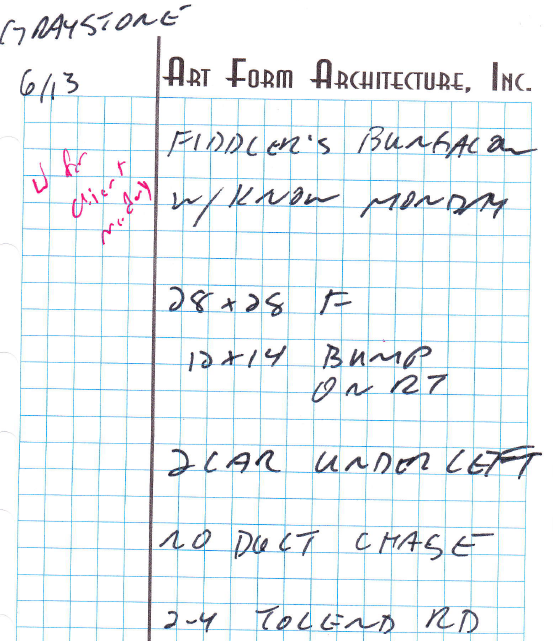 GRAYSTONE
6/13
ART FORM ARCHITECTURE, INC.
FIDDLER'S BUNGALOW
W/KNOW MONDAY
W for
client
monday
28x28 F
12x14 BUMP
ON RT
2 CAR UNDER LEFT
NO DUCT CHASE
2-4 TOLEND RD